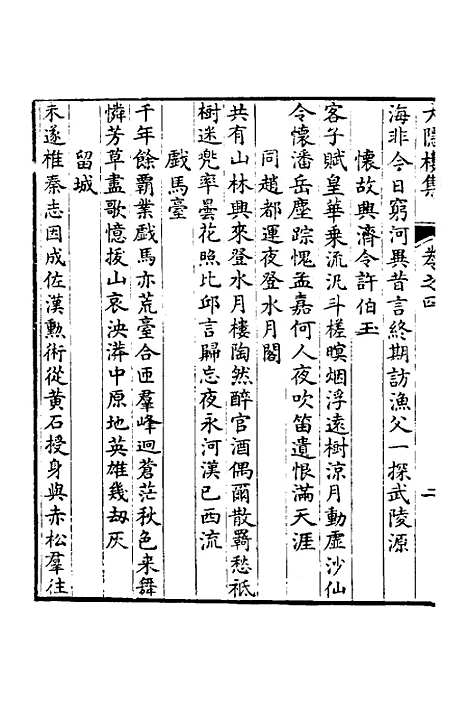 大隱樓集 卷之四 二
海非今日窮河異昔言終期訪漁父一探武陵源
懷故興濟令許伯玉
客子賦皇華乗流汎斗槎暝烟浮遠樹涼月動虛沙仙
令懷潘岳塵踪愧孟嘉何人夜吹笛遺恨滿天涯
同趙都運夜登水月閣
共有山林興來登水月樓陶然醉官酒偶爾散羇愁祇
樹迷兠率曇花照比邱言歸忘夜永河漢已西流
戲馬臺
千年餘霸業戲馬亦荒臺合匝羣峰迥蒼茫秋色来舞
憐芳草盡歌憶拔山哀泱漭中原地英雄幾刼灰
留城
未遂椎秦志因成佐漢勲術從黄石授身與赤松羣往